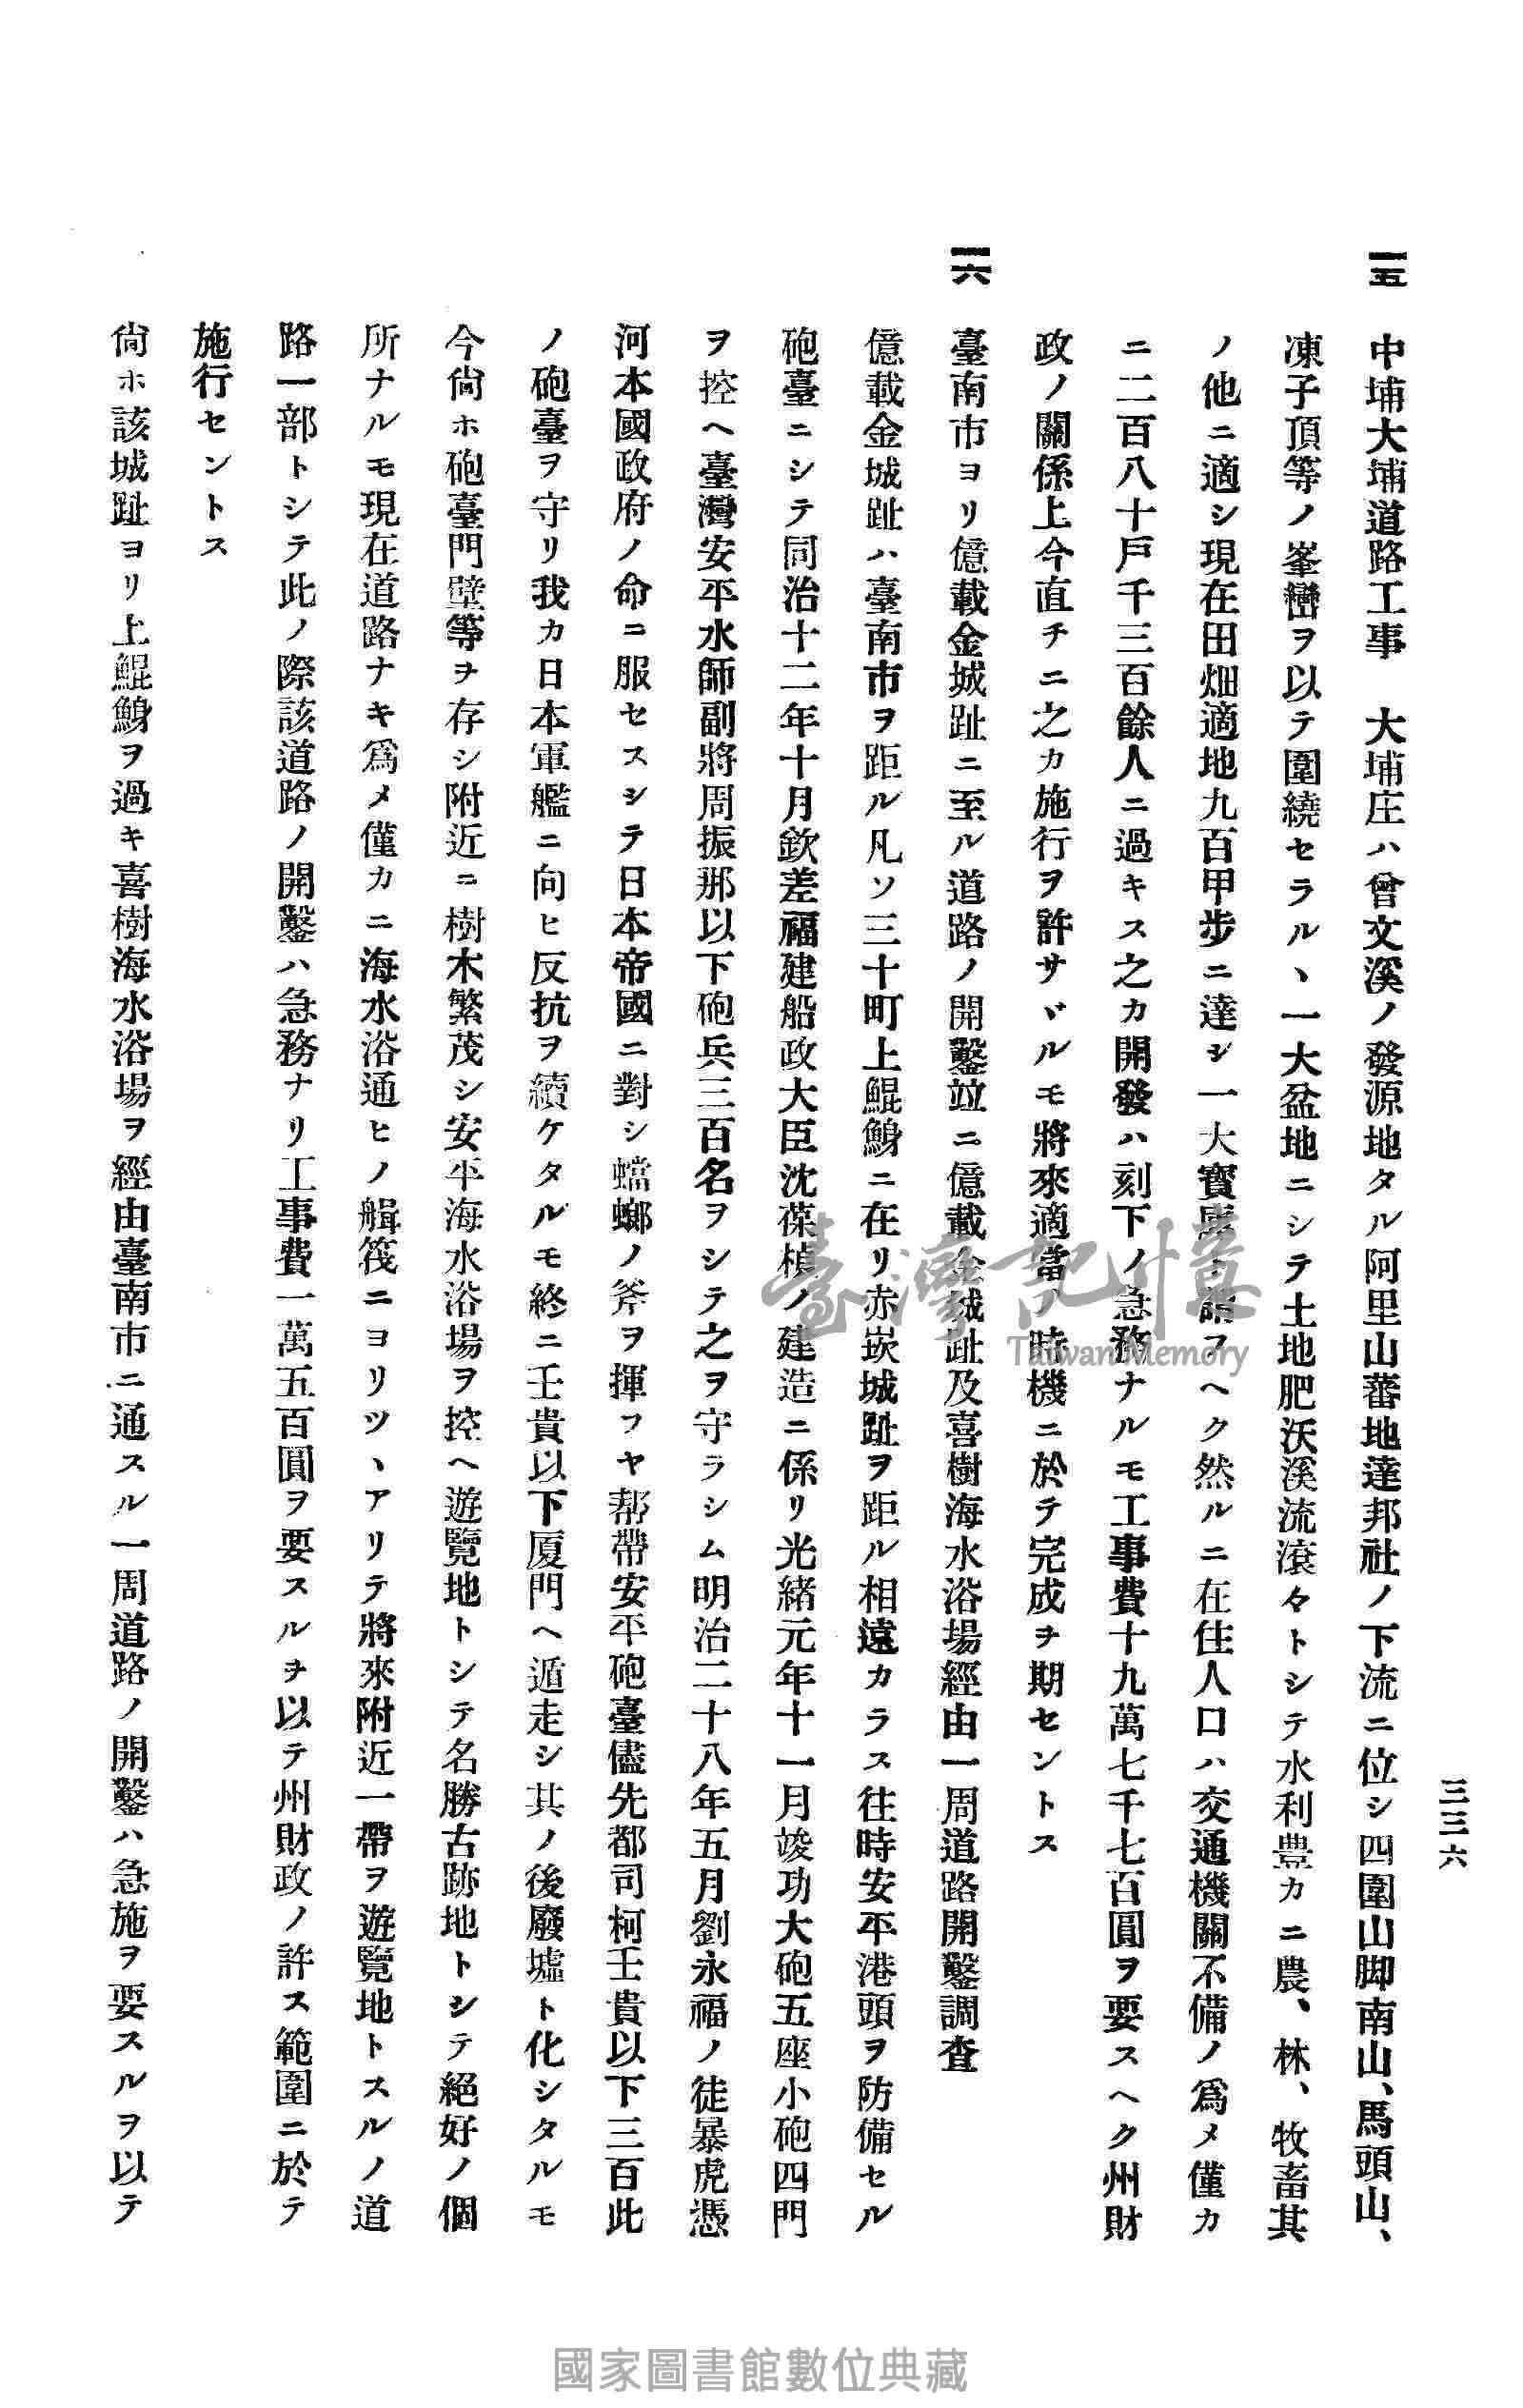 三三六
一五 中埔大埔道路工事 大埔庄ハ曾文溪ノ發源地タル阿里山蕃地達邦社ノ下流ニ位シ四圍山脚南山、馬頭山、
凍子頂等ノ峯巒ヲ以テ圍繞セラル、一大盆地ニシテ土地肥沃溪流滾々トシテ水利豊カニ農、林、牧畜其
ノ他ニ適シ現在田畑適地九百甲步ニ達シ一大寶庫ト謂フヘク然ルニ在住人口ハ交通機關不備ノ爲メ僅カ
ニ二百八十戶千三百餘人ニ過キス之カ開發ハ刻下ノ急務ナルモ工事費十九萬七千七百圓ヲ要スヘク州財
政ノ關係上今直チニ之カ施行ヲ許サヾルモ將來適當ノ時機ニ於テ完成ヲ期セントス
一六 臺南市ヨリ億載金城趾ニ至ル道路ノ開鑿竝ニ億載金城趾及喜樹海水浴場經由一周道路開鑿調査
億載金城趾ハ臺南市ヲ距ル凡ソ三十町上鯤鯓ニ在リ赤崁城趾ヲ距ル相遠カラス往時安平港頭ヲ防備セル
砲臺ニシテ同治十二年十月欽差福建船政大臣沈葆楨ノ建造ニ係リ光緒元年十一月竣功大砲五座小砲四門
ヲ控ヘ臺灣安平水師副將周振那以下砲兵三百名ヲシテ之ヲ守ラシム明治二十八年五月劉永福ノ徒暴虎憑
河本國政府ノ命ニ服セスシテ日本帝國ニ對シ蟷螂ノ斧ヲ揮フヤ幇帶安平砲臺儘先都司柯壬貴以下三百此
ノ砲臺ヲ守リ我カ日本軍艦ニ向ヒ反抗ヲ續ケタルモ終ニ壬貴以下厦門ヘ遁走シ其ノ後廢墟ト化シタルモ
今尙ホ砲臺門壁等ヲ存シ附近ニ樹木繁茂シ安平海水浴場ヲ控ヘ遊覽地トシテ名勝古跡地トシテ絕好ノ個
所ナルモ現在道路ナキ爲メ僅カニ海水浴通ヒノ艀筏ニヨリツ、アリテ將來附近一帶ヲ遊覽地トスルノ道
路一部トシテ此ノ際該道路ノ開鑿ハ急務ナリ工事費一萬五百圓ヲ要スルヲ以テ州財政ノ許ス範圍ニ於テ
施行セントス
尙ホ該城趾ヨリ上鯤鯓ヲ過キ喜樹海水浴場ヲ經由臺南市ニ通スル一周道路ノ開鑿ハ急施ヲ要スルヲ以テ
臺灣記憶
Taiwan Memory
國家圖書館數位典藏